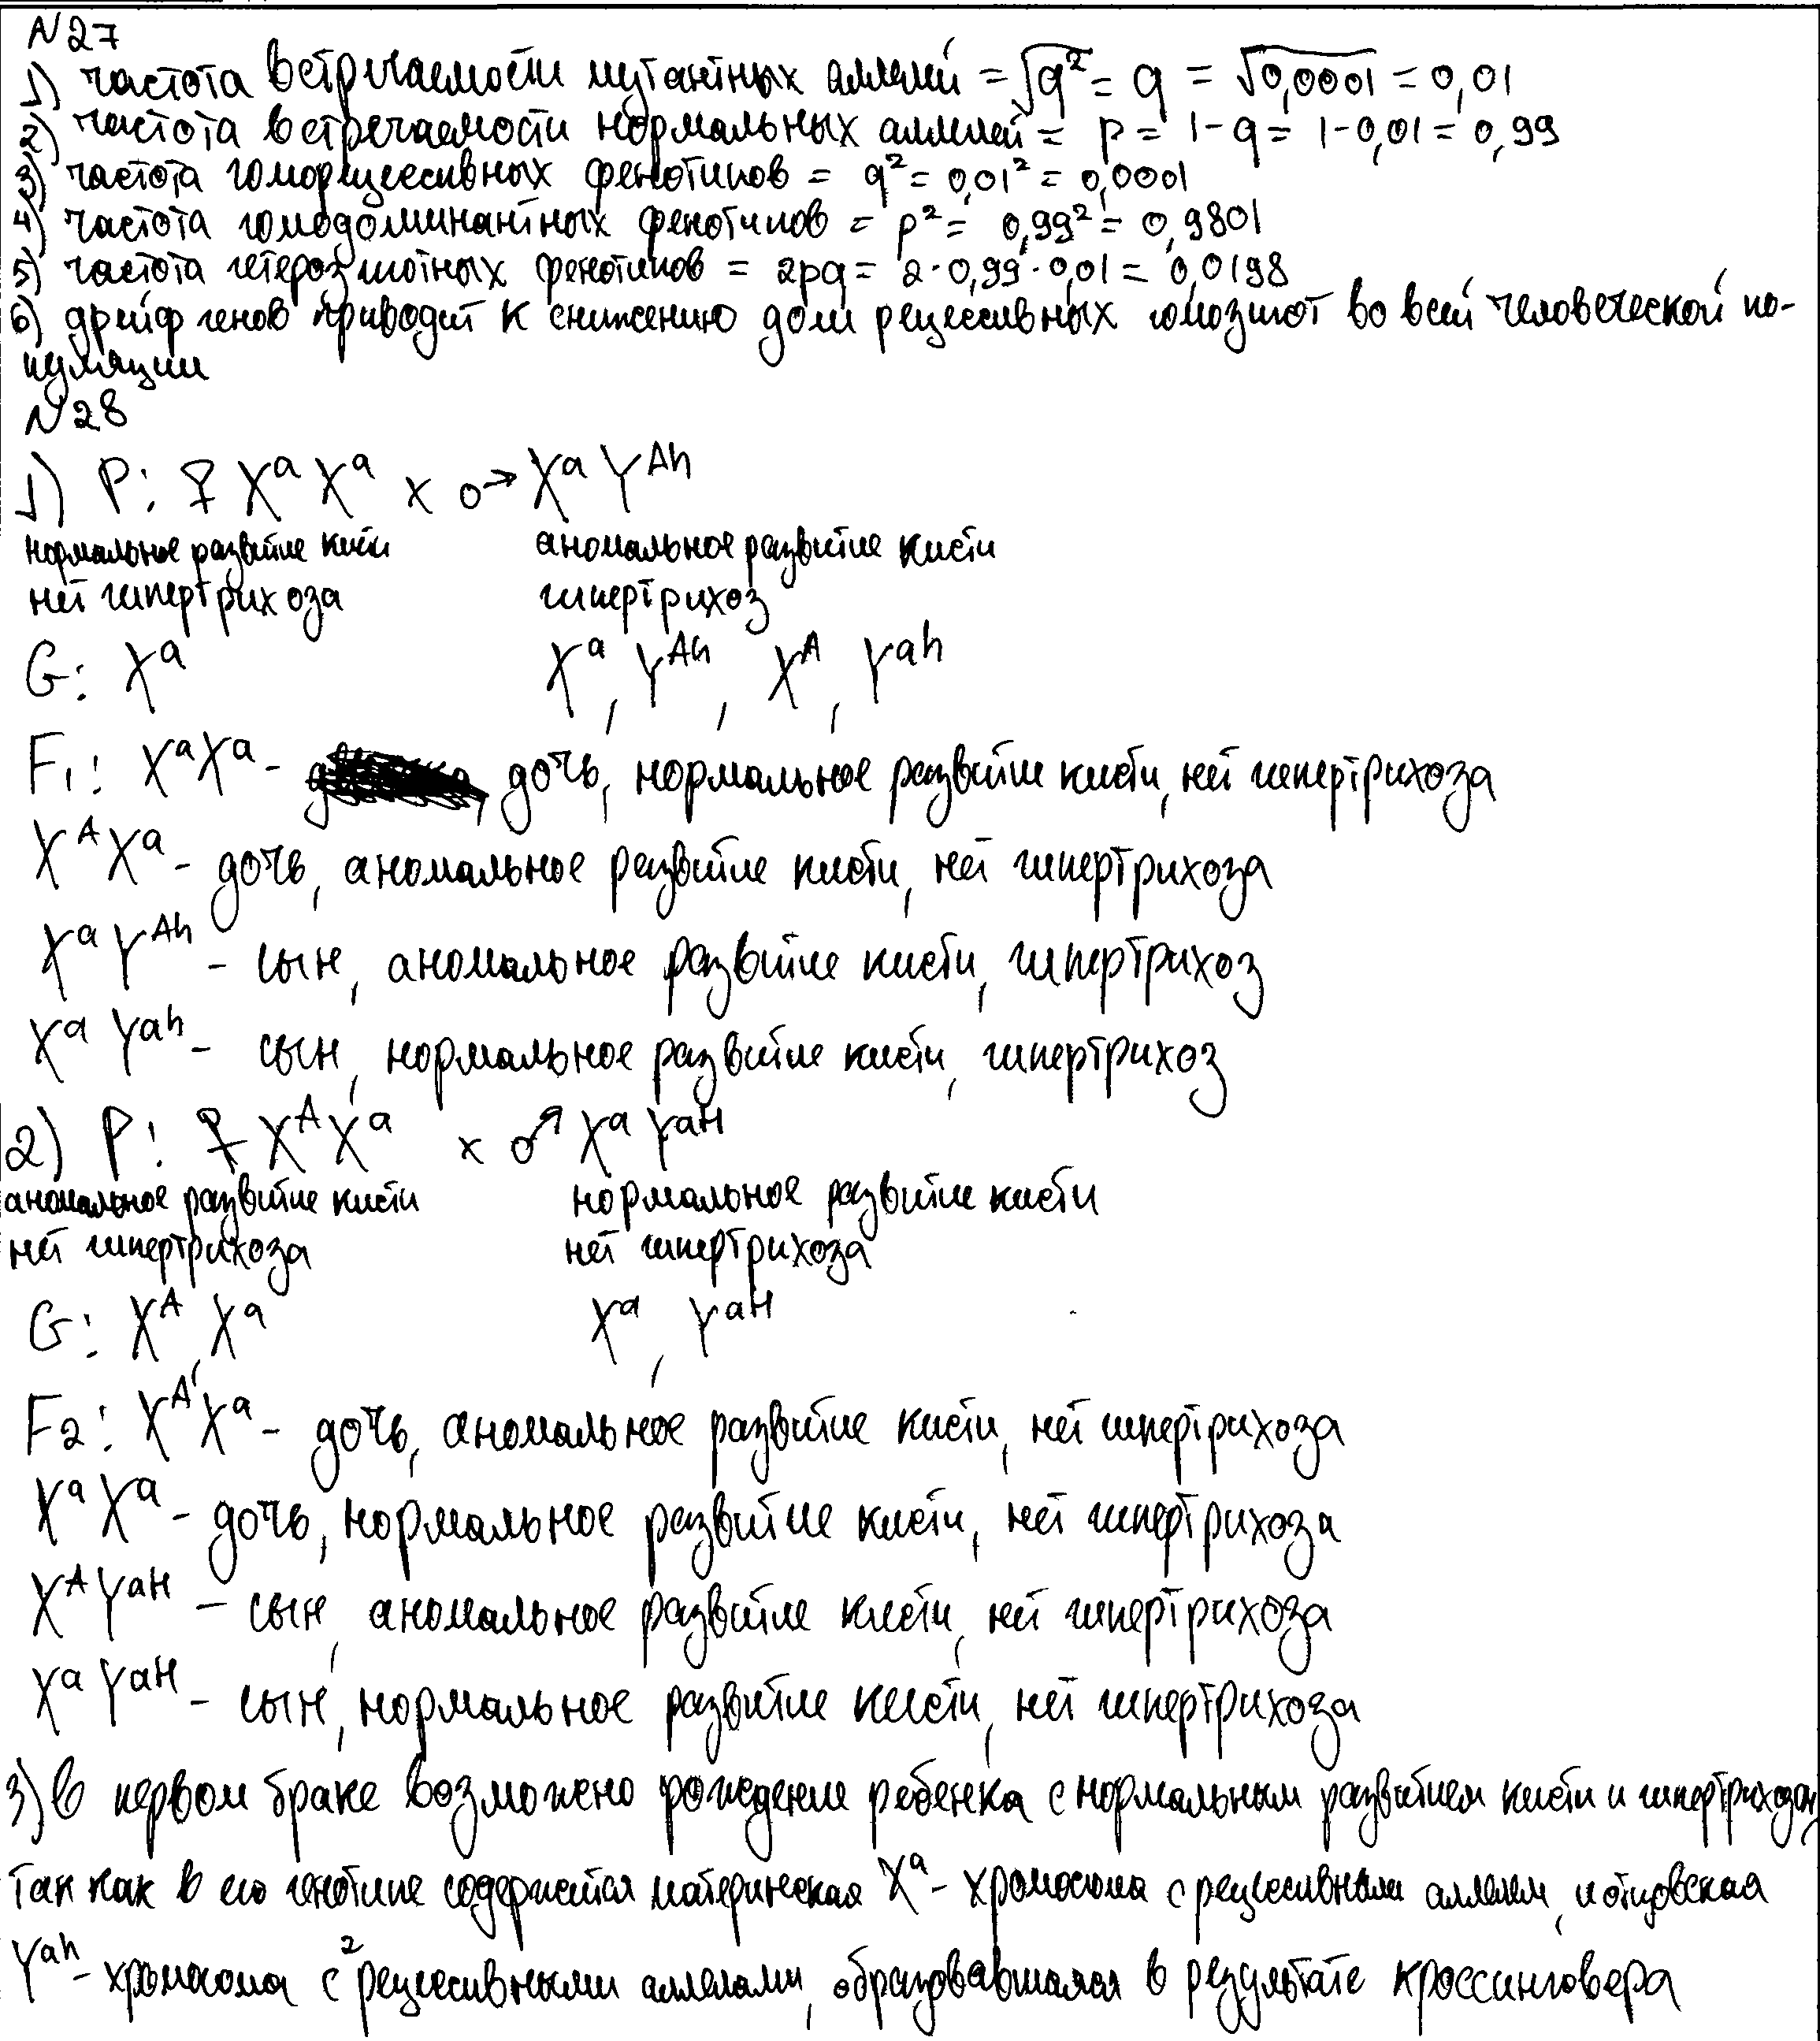 N27
1) частота встречаемости мутантных аллелей = √q² = q = √0,0001 = 0,01
2) частота встречаемости нормальных аллелей = p = 1-q = 1-0,01 = 0,99
3) частота гоморецессивных фенотипов = q² = 0,01² = 0,0001
4) частота гомодоминантных фенотипов = p² = 0,99² = 0,9801
5) частота гетерозиготных фенотипов = 2pq = 2·0,99·0,01 = 0,0198
6) дрейф генов приводит к снижению доли рецессивных гомозигот во всей человеческой по-
пуляции
N28
1) P: ♀ XᵃXᵃ x ♂ XᵃYᴬʰ
нормальное развитие кисти аномальное развитие кисти
нет гипертрихоза гипертрихоз
G: Xᵃ Xᵃ, Yᴬʰ, Xᴬ, Yᵃʰ
F₁: XᵃXᵃ - дочь, нормальное развитие кисти, нет гипертрихоза
XᴬXᵃ - дочь, аномальное развитие кисти, нет гипертрихоза
XᵃYᴬʰ - сын, аномальное развитие кисти, гипертрихоз
XᵃYᵃʰ - сын, нормальное развитие кисти, гипертрихоз
2) P: ♀ XᴬXᵃ x ♂ XᵃYᵃᴴ
аномальное развитие кисти нормальное развитие кисти
нет гипертрихоза нет гипертрихоза
G: Xᴬ, Xᵃ Xᵃ, Yᵃᴴ
F₂: XᴬXᵃ - дочь, аномальное развитие кисти, нет гипертрихоза
XᵃXᵃ - дочь, нормальное развитие кисти, нет гипертрихоза
XᴬYᵃᴴ - сын, аномальное развитие кисти, нет гипертрихоза
XᵃYᵃᴴ - сын, нормальное развитие кисти, нет гипертрихоза
3) В первом браке возможно рождение ребенка с нормальным развитием кисти и гипертрихозом,
так как в его генотипе содержится материнская Xᵃ - хромосома с рецессивным аллелем, и отцовская
Yᵃʰ - хромосома с 2 рецессивными аллелами, образовавшаяся в результате кроссинговера